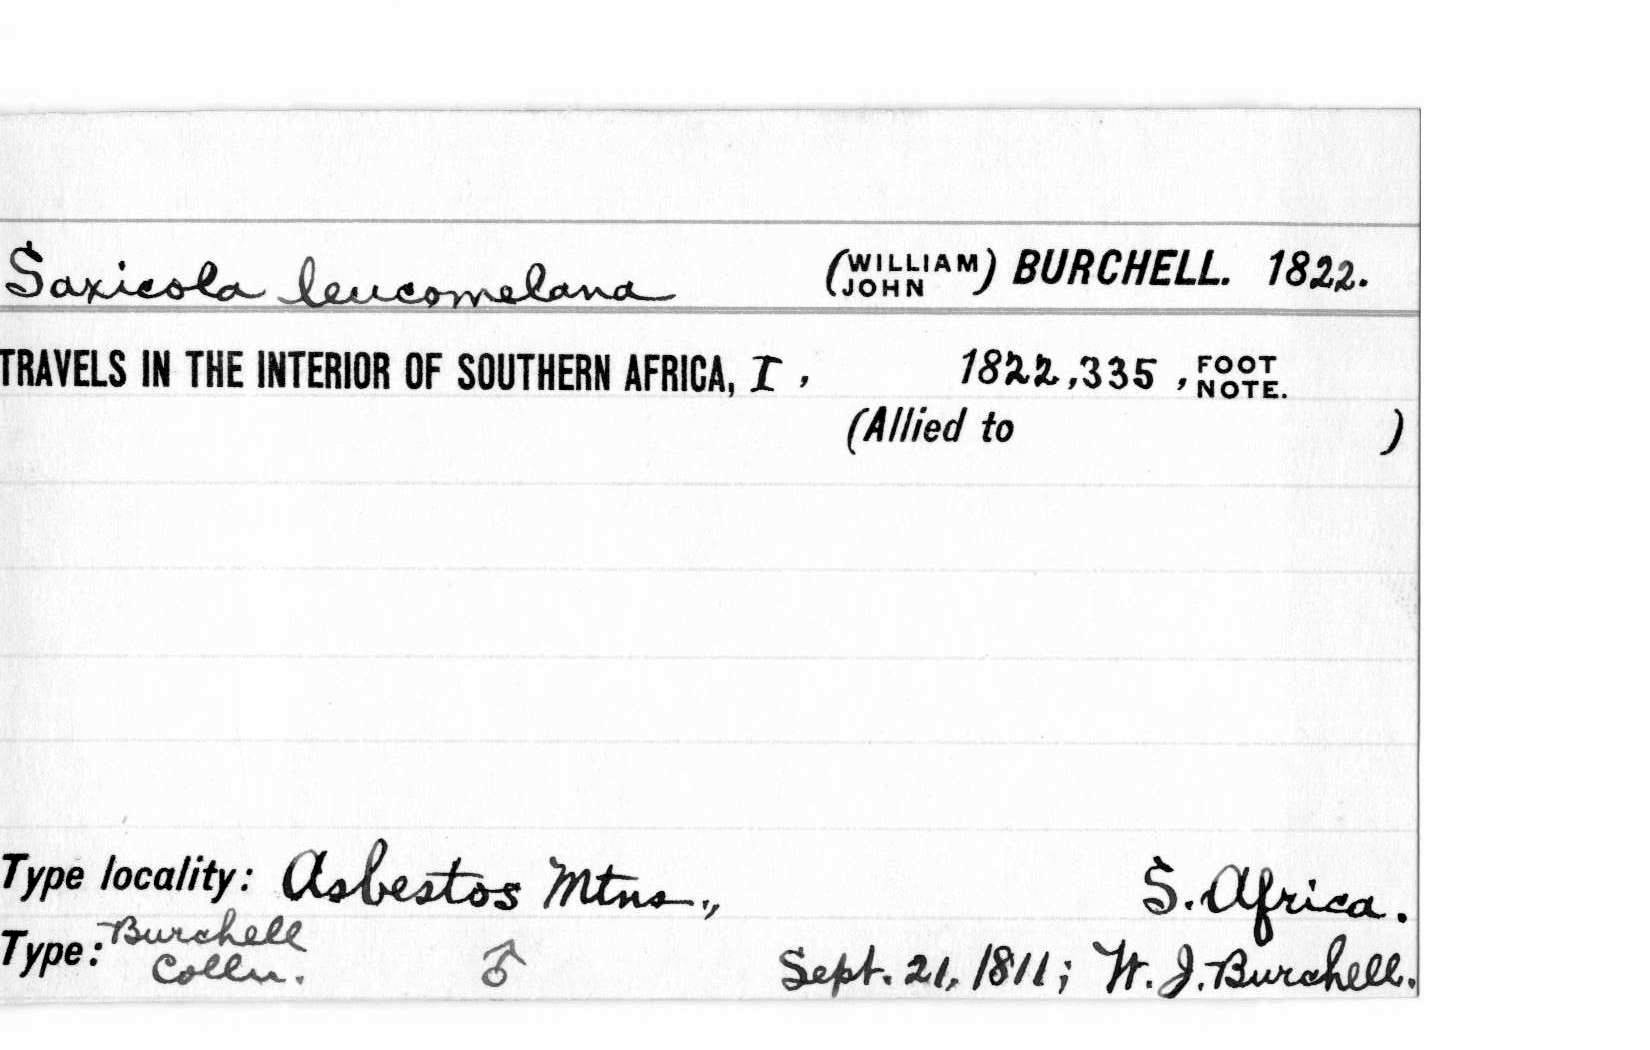 Saxicola leucomelana (WILLIAM JOHN) BURCHELL. 1822.
TRAVELS IN THE INTERIOR OF SOUTHERN AFRICA, I, 1822, 335, FOOT NOTE.
(Allied to )
Type locality: Asbestos Mtns., S. Africa.
Type: Burchell Colln. ♂ Sept. 21, 1811; W. J. Burchell.